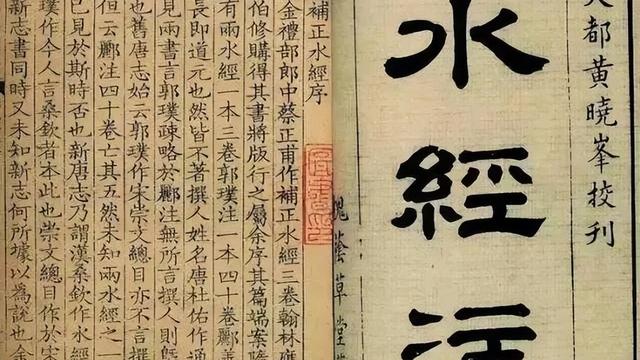 天都黃曉峯挍刊
水經注
槐蔭草堂
補正水經序
金禮部郎中蔡正甫作補正水經三卷翰林應
伯修購得其書將版行之屬余序其篇端案隋
有兩水經一本三卷郭璞注一本四十卷酈善
長即道元也然皆不著撰人姓名唐杜佑作通
見兩書言郭璞疎略於酈注無所言撰人則
也舊唐志始云郭璞作宋崇文總目亦不言撰
但云酈注四十卷亡其五然未知兩水經之一
已見於斯時否也新唐志乃謂漢桑欽作水經
璞作今人言桑欽者本此也崇文總目作於宋
新志書同時又未知新志何所據以為說也余